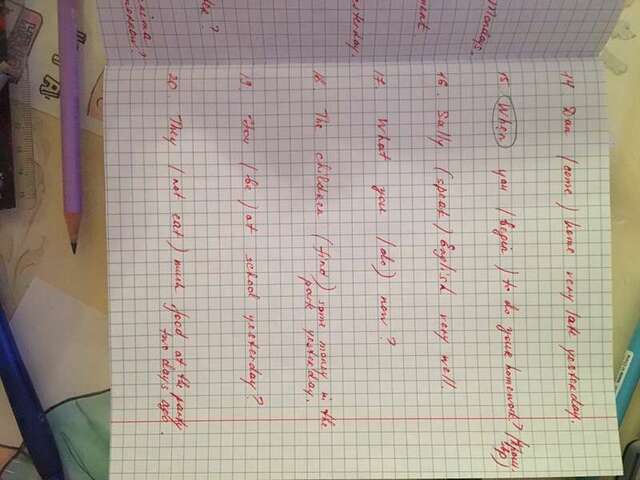 Mondays.
yesterday.
14. Dan (come) home very late yesterday.
15. When you (begin) to do your homework?
16. Sally (speak) English very well.
17. What you (do) now?
18. The children (find) some money in the
park yesterday.
19. You (be) at school yesterday?
20. They (not eat) much food at the party
two days ago.